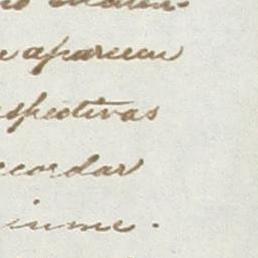 aparecen
espectivas
ecordar
inme.